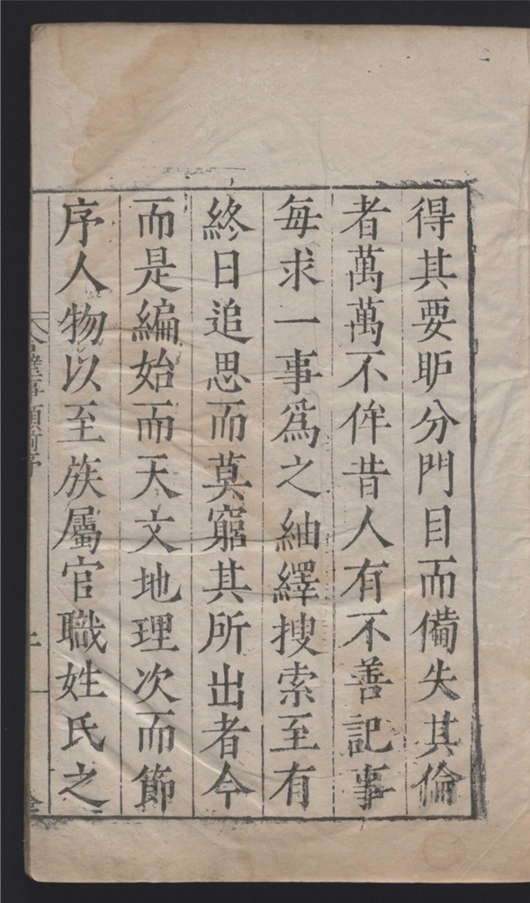 得其要眎分門目而備失其倫
者萬萬不侔昔人有不善記事
每求一事爲之紬繹搜索至有
終日追思而莫窮其所出者今
而是編始而天文地理次而節
序人物以至族屬官職姓氏之